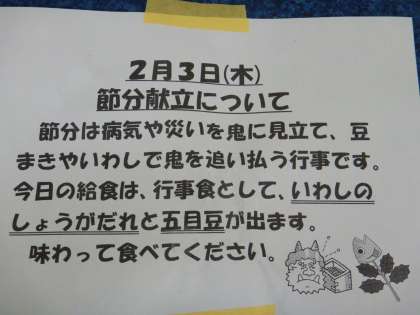 2月3日(木)
節分献立について
節分は病気や災いを鬼に見立て、豆
まきやいわしで鬼を追い払う行事です。
今日の給食は、行事食として、いわしの
しょうがだれと五目豆が出ます。
味わって食べてください。